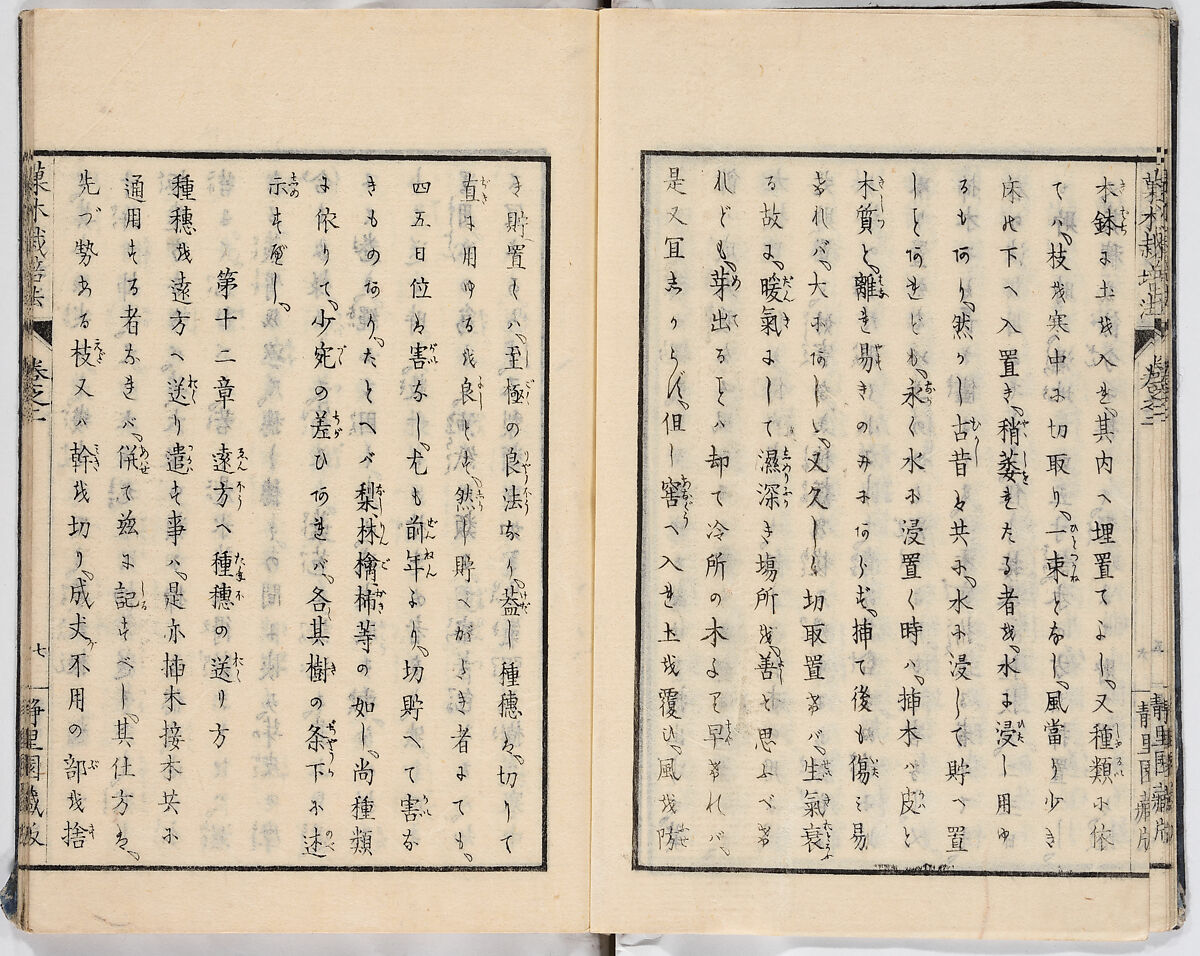 木鉢に土を入れ、其内へ埋置てよし、又種類に依
ては、枝を寒中に切取り、一束となし、風當り少き
床の下へ入置き、稍萎れたる者を、水に浸し用ゆ
るもあり、然かし古昔は共に、水に浸して貯へ置
しことあれども、永く水に浸置く時は、挿木は皮と
木質と離れ易きのみにあらず、挿て後も傷み易
ければ、大に
又久しく切取置けば、生氣衰
る故に、暖氣にして濕深き塲所を、善と思ふべけ
れども、芽出ることは却て冷所の木より早ければ、
是又宜しからず、但し窖へ入れ土を覆ひ、風を防
菓木栽培法
卷之二
靜里園藏版
ぎ貯置くは、至極の良法なり、蓋し種穗は、切りて
直に用ゆるを良しとす、然し貯へがたき者にても、
四五日位は害なし、尤も前年より、切貯へて害な
きものあり、たとへば梨、林檎、柿等の如し、尚種類
に依りて、少宛の差ひあれば、各其樹の条下に述
示すべし、
第十二章　遠方へ種穗の送り方
種穗を遠方へ送り遣す事は、是亦挿木接木共に
通用する者なれば、併て玆に記すべし、其仕方は、
先づ勢ある枝又は幹を切り、成丈不用の部を捨
菓木栽培法
卷之二
七
靜里園藏版